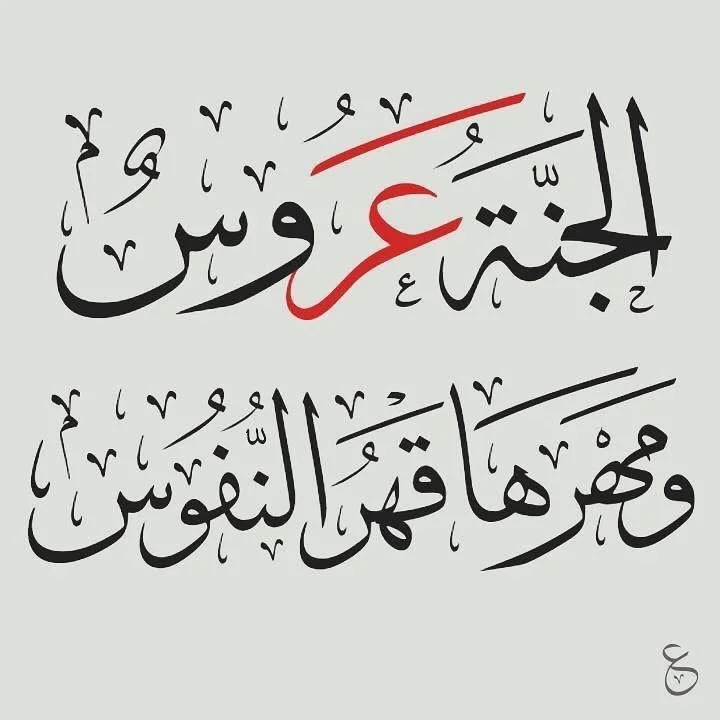 الجنَّةُ عَرُوسٌ
ومَهْرَهَا قَهْرُ النُّفُوسِ
ع